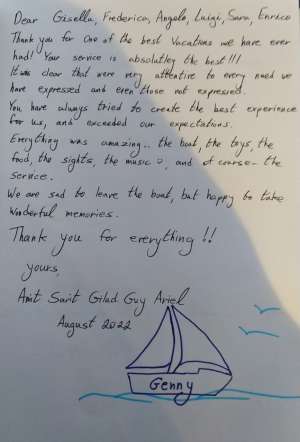 Dear Gisella, Frederico, Angelo, Luigi, Sara, Enrico
Thank you for One of the best Vacations we have ever
had! Your service is absolutley the best!!!
It was clear that were very attentive to every need we
have expressed and even those not expressed.
You have always tried to create the best experience
for us, and exceeded our expectations.
Everything was amazing.. the boat, the toys, the
food, the sights, the music, and of coarse - the
service.
We are sad to leave the boat, but happy to take
wonderful memories.
Thank you for everything!!
yours,
Amit Sarit Gilad Guy Ariel
August 2022
Genny